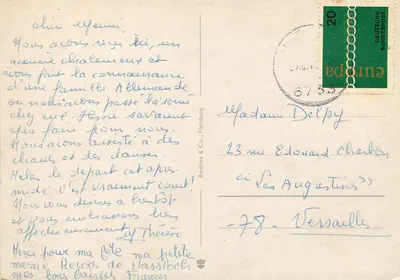 chère Mémé
Nous avons reçu ici, un
accueil chaleureux et
avons fait la connaissance
d'une famille Allemande
où nous avons passé la soirée
chez eux. Ils ne savaient
que faire pour nous.
Nous avons assisté à des
chants et des danses.
Hélas le départ cet après
midi. C'est vraiment court!
Nous vous disons à bientôt
et vous embrassons bien
affectueusement
Thérèse
Merci pour ma fête ma petite
mémé. Reçois de
bons baisers Francis
Andres & Co., Hamburg
20
DEUTSCHE
BUNDESPOST
europa
6733
Madame Delpy
23 rue Edouard Charton
"Les Augustins"
-78- Versailles